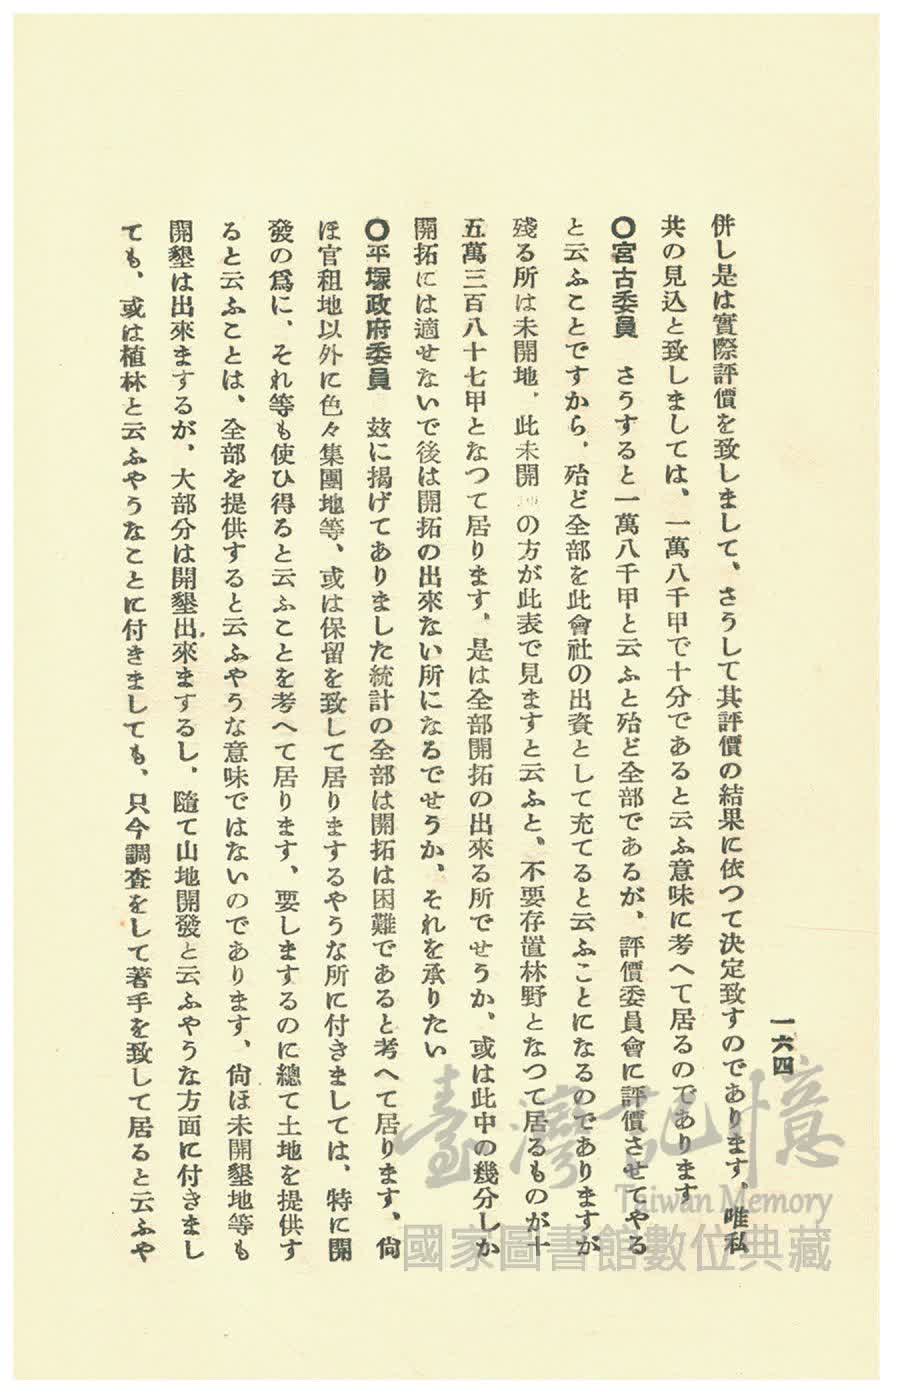 併し是は實際評價を致しまして、さうして其評價の結果に依つて決定致すのであります、唯私
共の見込と致しましては、一萬八千甲で十分であると云ふ意味に考へて居るのであります
〇宮古委員　さうすると一萬八千甲と云ふと殆ど全部であるが、評價委員會に評價させてやる
と云ふことですから、殆ど全部を此會社の出資として充てると云ふことになるのでありますが
殘る所は未開地、此未開の方が此表で見ますと云ふと、不要存置林野となつて居るものが十
五萬三百八十七甲となつて居ります、是は全部開拓の出來る所でせうか、或は此中の幾分しか
開拓には適せないで後は開拓の出來ない所になるでせうか、それを承りたい
〇平塚政府委員　玆に揭げてありました統計の全部は開拓は困難であると考へて居ります、尙
ほ官租地以外に色々集團地等、或は保留を致して居りまするやうな所に付きましては、特に開
發の爲に、それ等も使ひ得ると云ふことを考へて居ります、要しまするのに總て土地を提供す
ると云ふことは、全部を提供すると云ふやうな意味ではないのであります、尙ほ未開墾地等も
開墾は出來まするが、大部分は開墾出來まするし、隨て山地開發と云ふやうな方面に付きまし
ても、或は植林と云ふやうなことに付きましても、只今調査をして著手を致して居ると云ふや
一六四
臺灣記憶
Taiwan Memory
國家圖書館數位典藏